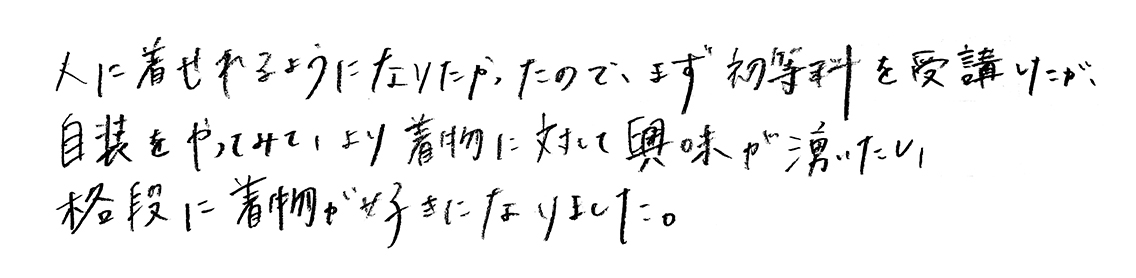 人に着せれるようになりたかったので、まず初等科を受講したが、
自装をやってみて、より着物に対して興味が湧いたし、
格段に着物が好きになりました。